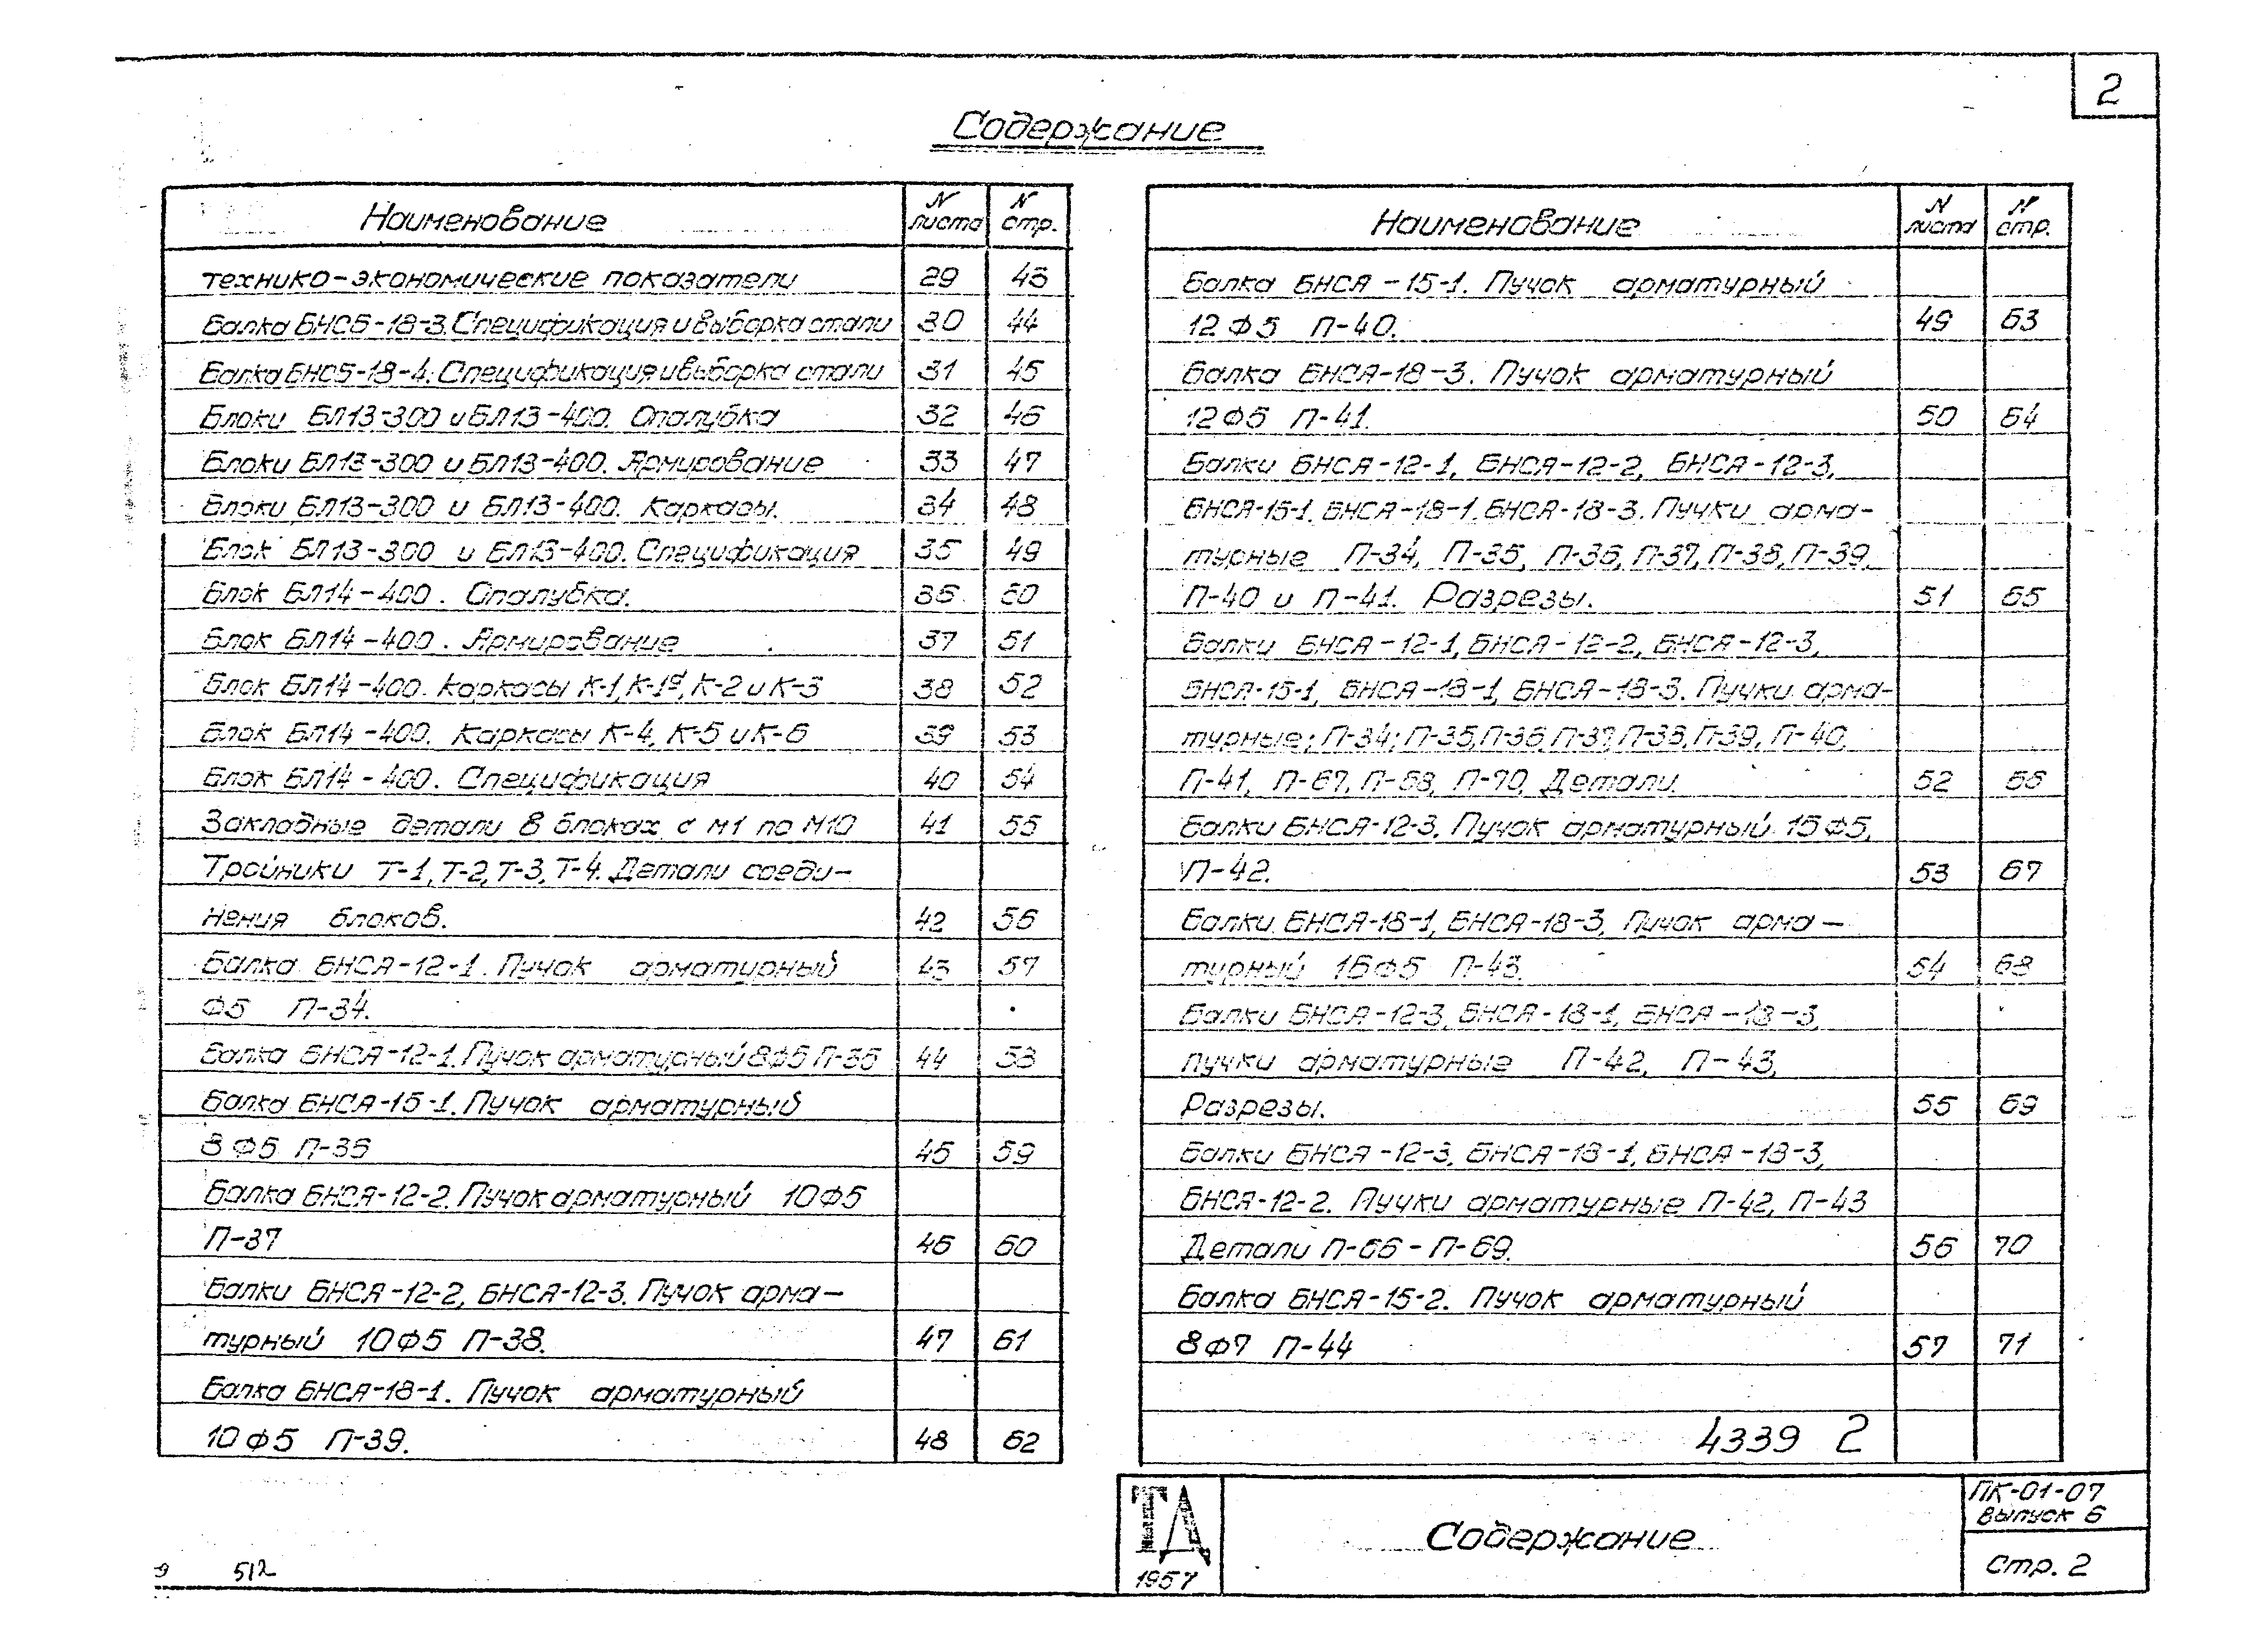 2
Содержание
Наименование N листа N стр.
технико-экономические показатели 29 43
Балка БНСБ-18-3. Спецификация и выборка стали 30 44
Балка БНСБ-18-4. Спецификация и выборка стали 31 45
Блоки БЛ13-300 и БЛ13-400. Опалубка 32 46
Блоки БЛ13-300 и БЛ13-400. Армирование 33 47
Блоки БЛ13-300 и БЛ13-400. Каркасы. 34 48
Блок БЛ13-300 и БЛ13-400. Спецификация 35 49
Блок БЛ14-400. Опалубка. 36 50
Блок БЛ14-400. Армирование 37 51
Блок БЛ14-400. Каркасы К-1, К-1а, К-2 и К-3 38 52
Блок БЛ14-400. Каркасы К-4, К-5 и К-6 39 53
Блок БЛ14-400. Спецификация 40 54
Закладные детали в блоках с М1 по М10 41 55
Тройники Т-1, Т-2, Т-3, Т-4. Детали соеди-
нения блоков. 42 56
Балка БНСА-12-1. Пучок арматурный 43 57
Ф5 П-34.
Балка БНСА-12-1. Пучок арматурный 8Ф5 П-35 44 58
Балка БНСА-15-1. Пучок арматурный
8Ф5 П-36 45 59
Балка БНСА-12-2. Пучок арматурный 10Ф5
П-37 46 60
Балки БНСА-12-2, БНСА-12-3. Пучок арма-
турный 10Ф5 П-38. 47 61
Балка БНСА-18-1. Пучок арматурный
10Ф5 П-39. 48 62
Наименование N листа N стр.
Балка БНСА-15-1. Пучок арматурный
12Ф5 П-40. 49 63
Балка БНСА-18-3. Пучок арматурный
12Ф5 П-41. 50 64
Балки БНСА-12-1, БНСА-12-2, БНСА-12-3,
БНСА-15-1, БНСА-18-1, БНСА-18-3. Пучки арма-
турные П-34, П-35, П-36, П-37, П-38, П-39,
П-40 и П-41. Разрезы. 51 65
Балки БНСА-12-1, БНСА-12-2, БНСА-12-3,
БНСА-15-1, БНСА-18-1, БНСА-18-3. Пучки арма-
турные; П-34; П-35, П-36, П-37, П-38, П-39, П-40,
П-41, П-67, П-68, П-70, Детали. 52 66
Балки БНСА-12-3, Пучок арматурный 15Ф5,
П-42. 53 67
Балки БНСА-18-1, БНСА-18-3, Пучок арма-
турный 16Ф5 П-43. 54 68
Балки БНСА-12-3, БНСА-18-1, БНСА-18-3,
пучки арматурные П-42, П-43,
Разрезы. 55 69
Балки БНСА-12-3, БНСА-18-1, БНСА-18-3,
БНСА-12-2. Пучки арматурные П-42, П-43
Детали П-66-П-69. 56 70
Балка БНСА-15-2. Пучок арматурный
8Ф7 П-44 57 71
4339 2
ТД
1957
Содержание
ПК-01-07
Выпуск 6
Стр. 2
512